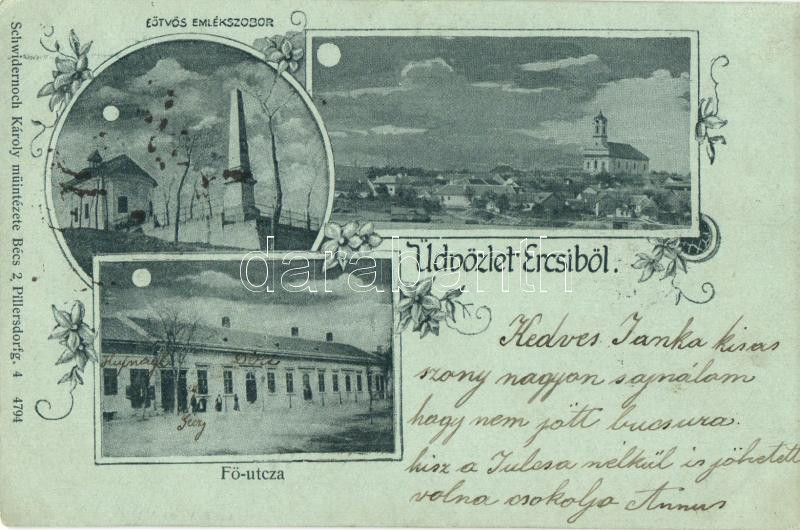 EÖTVÖS EMLÉKSZOBOR
Üdvözlet Ercsiböl.
Schwidernoch Károly müintézete Bécs 2, Pillersdorfg. 4 4794
darabanth.com
Fö-utcza
Kedves Janka kisas
szony nagyon sajnálom
hogy nem jött bucsura.
hisz a Julcsa nélkül is jöhetett
volna csokolja Annus